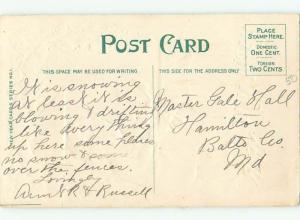 POST CARD
PLACE
STAMP HERE.
DOMESTIC
ONE CENT.
FOREIGN
TWO CENTS
THIS SPACE MAY BE USED FOR WRITING
THIS SIDE FOR THE ADDRESS.
It is snowing
at least it is
blowing & drifting
like every thing
up here some places
no snow &
over the fences.
Lovingly
Aunt R & Russell
Master Gale Hall
Hamilton
Balto Co.
Md